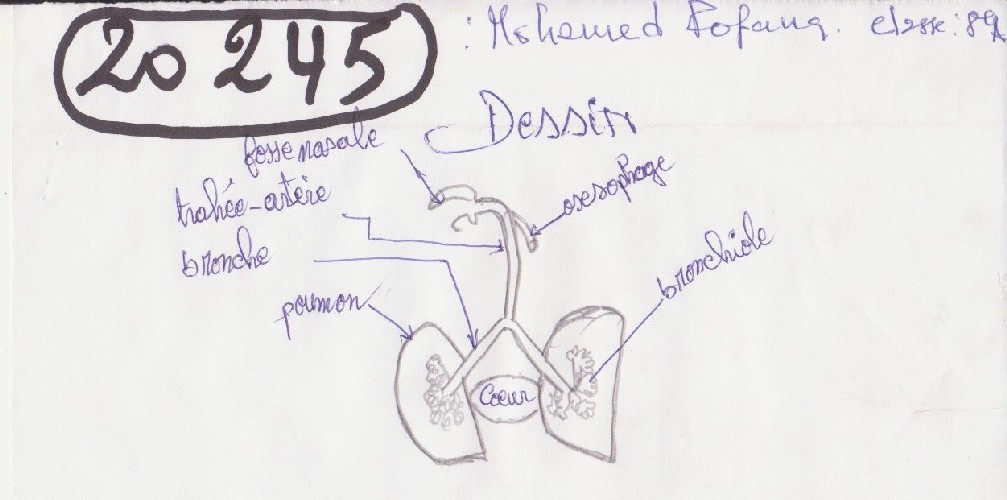 20 245
: Mohamed Fofana. classe: 8A
Dessin
fosse nasale
trahée-artère
bronche
poumon
oesophage
bronchiole
Coeur